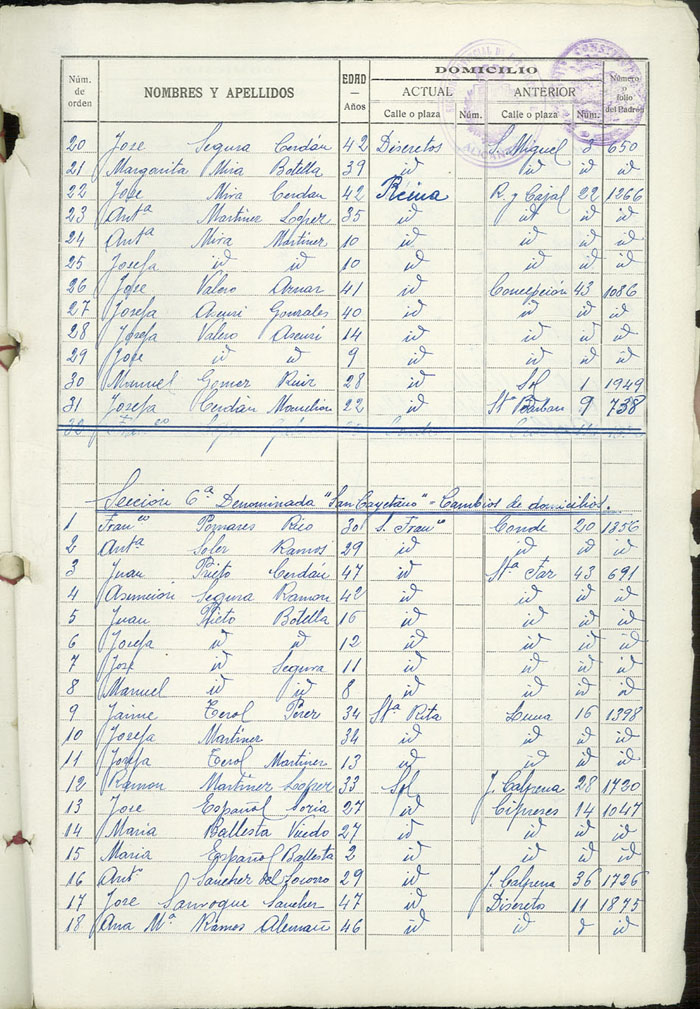 DOMICILIO
Núm. de orden NOMBRES Y APELLIDOS EDAD — Años ACTUAL Calle o plaza Núm. ANTERIOR Calle o plaza Núm. Número o folio del Padrón
20 Jose Segura Cerdán 42 Discretos S. Miguel 650
21 Margarita Mira Botella 39 id id id id
22 Jose Mira Cerdan 42 Reina R. y Cajal 22 1266
23 Antª Martinez Lopez 35 id id id id
24 Antª Mira Martinez 10 id id id id
25 Josefa id id 10 id id id id
26 Jose Valero Aznar 41 id Concepción 43 1086
27 Josefa Asensi Gonzales 40 id id id id
28 Josefa Valero Asensi 14 id id id id
29 Jose id id 9 id id id id
30 Manuel Gomez Ruiz 28 id Sol 1 1949
31 Josefa Cerdán 22 id Stª Barbara 9 738
32
Sección 6ª Denominada "San Cayetano" - Cambios de domicilios.
1 Franco Pomares Rico 30 S. Franco Conde 20 1356
2 Antª Soler Ramos 29 id id id id
3 Juan Prieto Cerdán 47 id Stª Faz 43 691
4 Asunción Segura Ramon 42 id id id id
5 Juan Prieto Botella 16 id id id id
6 Josefa id id 12 id id id id
7 Jose id Segura 11 id id id id
8 Manuel id id 8 id id id id
9 Jaime Terol Perez 34 Stª Rita Luna 16 1398
10 Josefa Martinez 34 id id id id
11 Josefa Terol Martinez 13 id id id id
12 Ramon Martinez Lopez 33 Sol J. Calpena 28 1720
13 Jose Español Soria 27 id Cipreses 14 1047
14 Maria Ballesta Viedo 27 id id id id
15 Maria Español Ballesta 2 id id id id
16 Antº Sanchez del Socorro 29 id J. Calpena 36 1726
17 Jose Sanroque Sanchez 47 id Discreto 11 1875
18 Ana Mª Ramos Alemañ 46 id id id id